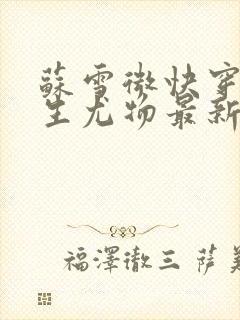 蘇雪微快穿
生尤物最新
福澤徹三 薩美